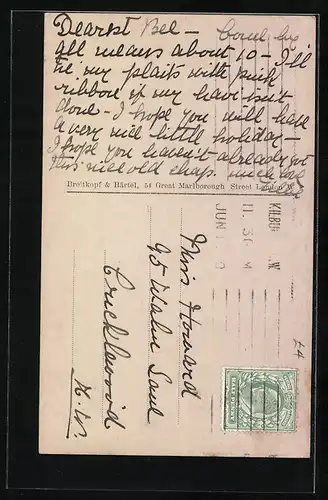 Dearest Bee - Come by
all means about 10 - I'll
tie my plaits with pink
ribbon if my hair isn't
done - I hope you will have
a very nice little holiday -
I hope you haven't already got
this nice old chap. much love
Breitkopf & Härtel, 54 Great Marlborough Street London W.
Miss Howard
95 Lane
Cricklewood
N.W.
KILBU W
11. 3 M
JUN 9
£4
HALFPENNY